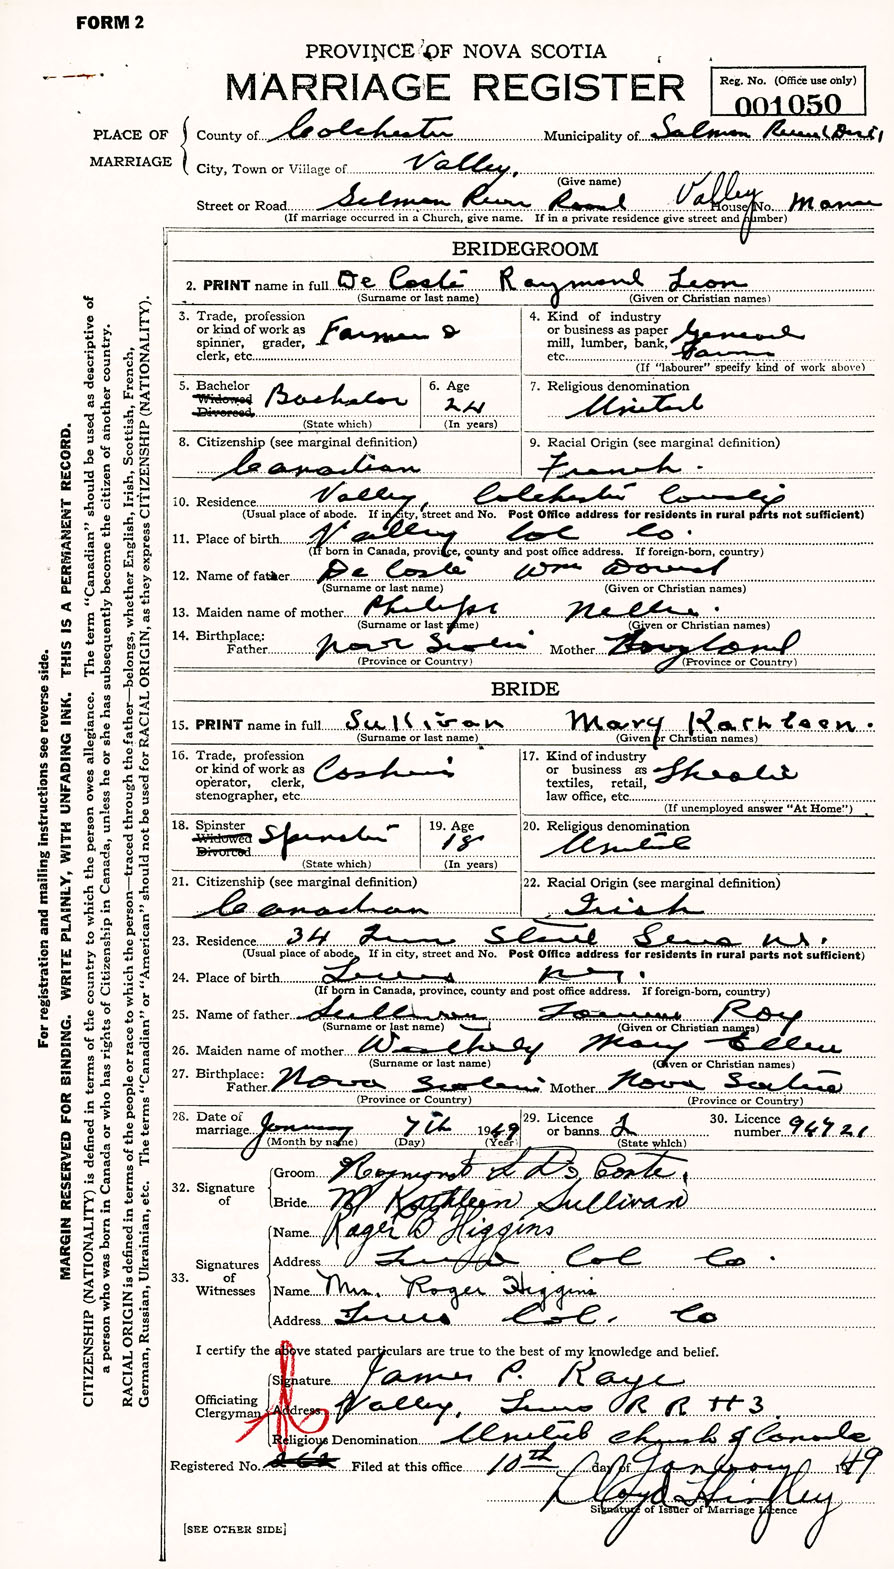 FORM 2
PROVINCE OF NOVA SCOTIA
MARRIAGE REGISTER
Reg. No. (Office use only)
001050
PLACE OF MARRIAGE
County of Colchester Municipality of Salmon River
City, Town or Village of Valley,
(Give name)
Street or Road Salmon River Road Valley House No. Manse
(If marriage occurred in a Church, give name. If in a private residence give street and number)
BRIDEGROOM
2. PRINT name in full De Coste Raymond Leon
(Surname or last name) (Given or Christian names)
3. Trade, profession or kind of work as spinner, grader, clerk, etc. Farmer
4. Kind of industry or business as paper mill, lumber, bank, etc. General Farm
(If "labourer" specify kind of work above)
5. Bachelor Widowed Divorced Bachelor
(State which)
6. Age 24
(In years)
7. Religious denomination United
8. Citizenship (see marginal definition) Canadian
9. Racial Origin (see marginal definition) French.
10. Residence Valley, Colchester County
(Usual place of abode. If in city, street and No. Post Office address for residents in rural parts not sufficient)
11. Place of birth Valley Col Co.
(If born in Canada, province, county and post office address. If foreign-born, country)
12. Name of father De Coste Wm
(Surname or last name) (Given or Christian names)
13. Maiden name of mother Nellie.
(Surname or last name) (Given or Christian names)
14. Birthplace: Father Nova Scotia Mother England
(Province or Country) (Province or Country)
BRIDE
15. PRINT name in full Sullivan Mary Kathleen.
(Surname or last name) (Given or Christian names)
16. Trade, profession or kind of work as operator, clerk, stenographer, etc. Cashier
17. Kind of industry or business as textiles, retail, law office, etc. Theatre
(If unemployed answer "At Home")
18. Spinster Widowed Divorced Spinster
(State which)
19. Age 18
(In years)
20. Religious denomination United
21. Citizenship (see marginal definition) Canadian
22. Racial Origin (see marginal definition) Irish
23. Residence 34 Street Truro N.S.
(Usual place of abode. If in city, street and No. Post Office address for residents in rural parts not sufficient)
24. Place of birth Truro N.S.
(If born in Canada, province, county and post office address. If foreign-born, country)
25. Name of father Sullivan Roy
(Surname or last name) (Given or Christian names)
26. Maiden name of mother Mary Ellen
(Surname or last name) (Given or Christian names)
27. Birthplace: Father Nova Scotia Mother Nova Scotia
(Province or Country) (Province or Country)
28. Date of marriage January 7th 1949
(Month by name) (Day) (Year)
29. Licence or banns L
(State which)
30. Licence number 94721
32. Signature of
Groom Raymond L De Coste.
Bride M Kathleen Sullivan
33. Signatures of Witnesses
Name Roger D Higgins
Address Truro Col Co.
Name Mrs. Roger Higgins
Address Truro Col. Co
I certify the above stated particulars are true to the best of my knowledge and belief.
Officiating Clergyman
Signature James P. Kaye
Address Valley, Truro R R #3.
Religious Denomination United Church of Canada
Registered No. Filed at this office 10th day of January 1949
Signature of Issuer of Marriage Licence
[SEE OTHER SIDE]
For registration and mailing instructions see reverse side.
MARGIN RESERVED FOR BINDING. WRITE PLAINLY, WITH UNFADING INK. THIS IS A PERMANENT RECORD.
CITIZENSHIP (NATIONALITY) is defined in terms of the country to which the person owes allegiance. The term "Canadian" should be used as descriptive of
a person who was born in Canada or who has rights of Citizenship in Canada, unless he or she has subsequently become the citizen of another country.
RACIAL ORIGIN is defined in terms of the people or race to which the person—traced through the father—belongs, whether English, Irish, Scottish, French,
German, Russian, Ukrainian, etc. The terms "Canadian" or "American" should not be used for RACIAL ORIGIN, as they express CITIZENSHIP (NATIONALITY).